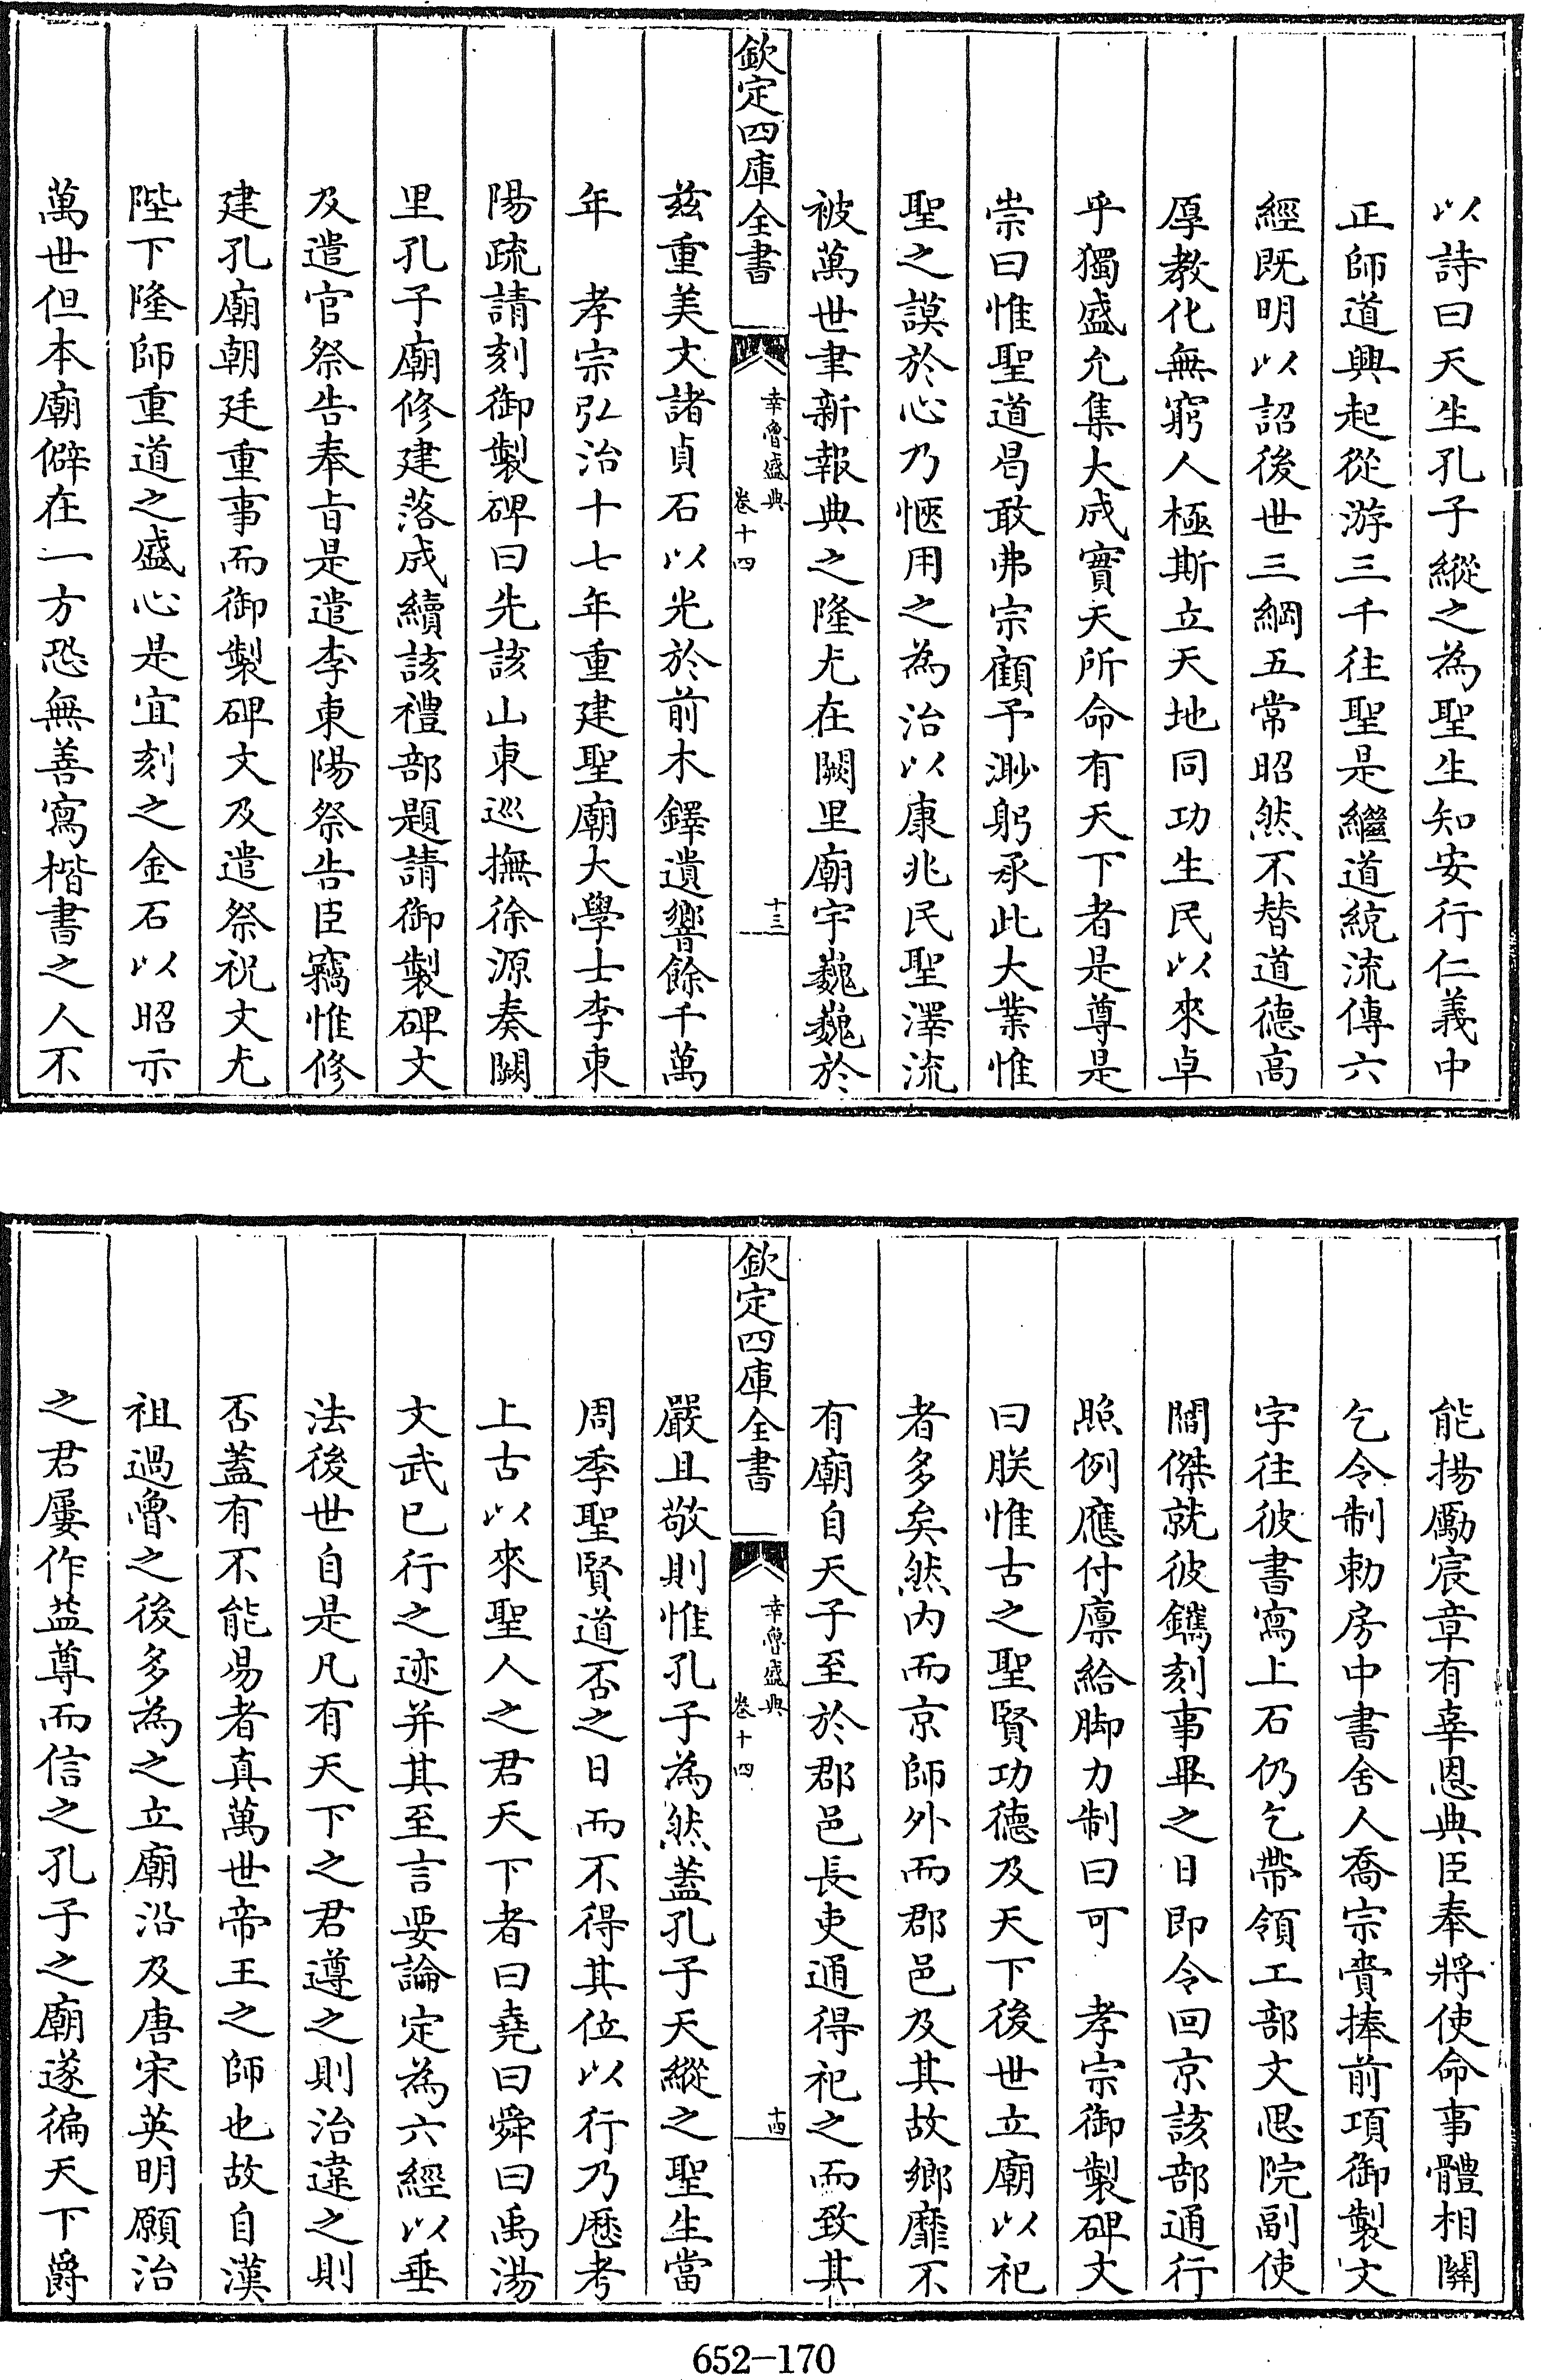 以詩曰天生孔子縱之為聖生知安行仁義中
正師道興起從游三千往聖是繼道統流傳六
經既明以詔後世三綱五常昭然不替道德高
厚教化無窮人極斯立天地同功生民以來卓
乎獨盛允集大成實天所命有天下者是尊是
崇曰惟聖道曷敢弗宗顧予渺躬承此大業惟
聖之謨於心乃愜用之為治以康兆民聖澤流
被萬世聿新報典之隆尤在闕里廟宇巍巍於
欽定四庫全書
幸魯盛典
卷十四
十三
兹重美文諸貞石以光於前木鐸遺響餘千萬
年　孝宗弘治十七年重建聖廟大學士李東
陽疏請刻御製碑曰先該山東巡撫徐源奏闕
里孔子廟修建落成續該禮部題請御製碑文
及遣官祭告奉旨是遣李東陽祭告臣竊惟修
建孔廟朝廷重事而御製碑文及遣祭祝文尤
陛下隆師重道之盛心是宜刻之金石以昭示
萬世但本廟僻在一方恐無善寫楷書之人不
能揚勵宸章有辜恩典臣奉將使命事體相關
乞令制勅房中書舍人喬宗賫捧前項御製文
字往彼書寫上石仍乞帶領工部文思院副使
閻傑就彼鐫刻事畢之日即令回京該部通行
照例應付廪給脚力制曰可　孝宗御製碑文
曰朕惟古之聖賢功德及天下後世立廟以祀
者多矣然内而京師外而郡邑及其故鄉靡不
有廟自天子至於郡邑長吏通得祀之而致其
欽定四庫全書
幸魯盛典
卷十四
十四
嚴且敬則惟孔子為然蓋孔子天縱之聖生當
周季聖賢道否之日而不得其位以行乃歷考
上古以來聖人之君天下者曰堯曰舜曰禹湯
文武已行之迹并其至言要論定為六經以垂
法後世自是凡有天下之君遵之則治違之則
否蓋有不能易者真萬世帝王之師也故自漢
祖過魯之後多為之立廟沿及唐宋英明願治
之君屢作益尊而信之孔子之廟遂徧天下爵
652-170